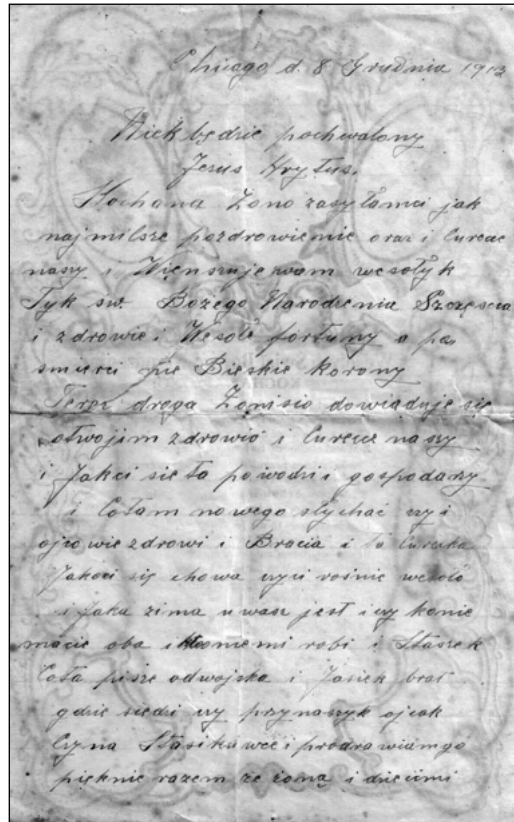 Chicago d. 8 Grudnia 1913
Niek będzie pochwalony
Jezus Hrystus.
Kochana Zono zasyłamci jak
najmilsze pozdrowienie oraz i Curece
naszy i Wienszuje wam wesołyk
Tyk św. Bozego Narodzenia Szczęscia
i zdrowie i Wesołe fortuny a po
smierci Bieskie korony
Teraz droga Zonisio dowiaduje się
otwojim zdrowió i Curece naszy
i Jakci sie ta powodzi i gospodarzy
i Cotam nowego słychać czy i
ojcowie zdrowi i Bracia i ta Curecka
Jakoci się chowa czyci rośnie wesoło
i Jaka zima u wasz jest i czy konie
mocie oba i robi i Staszek
Cota pisze odwojska i Jasiek brat
gdzie siedzi czy przynaszyk ojcak
Czyna Stasikówce i prodrawiamgo
pięknie razem ze zoną i dziećimi